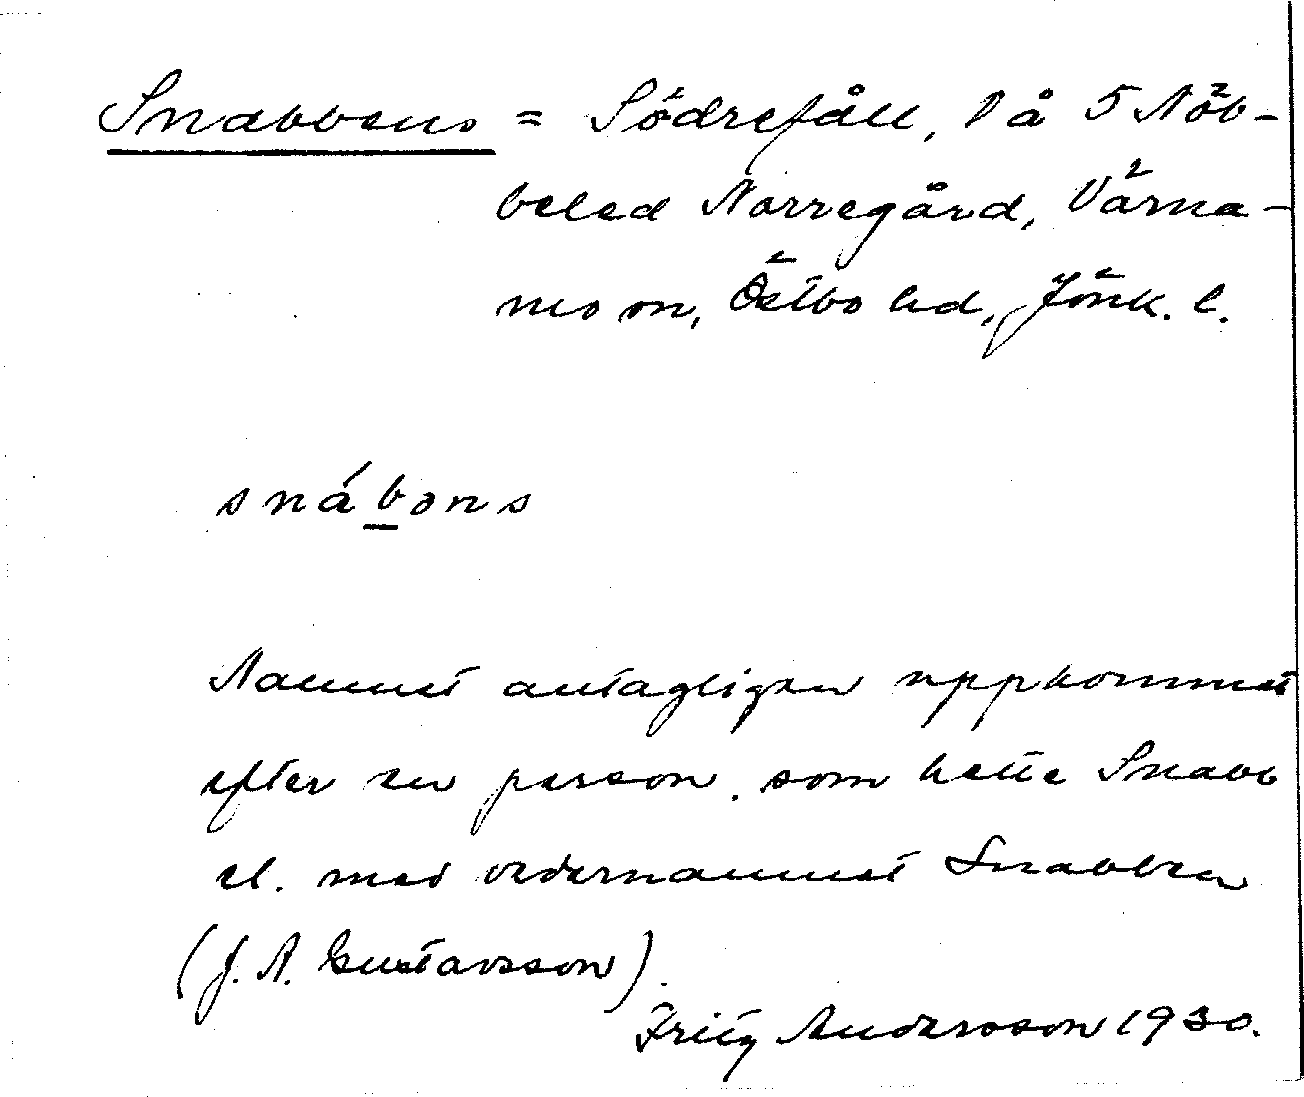 Snabbens = Södrefåll, 1 å 5 Nöb-
beled Norregård, Värna-
mo sn, Östbo hd, Jönk. l.
snábons
Namnet antagligen uppkommet
efter en person, som hette Snabb
el. med vedernamnet Snabben
(J. A. Gustavsson).
Fritz Andersson 1930.